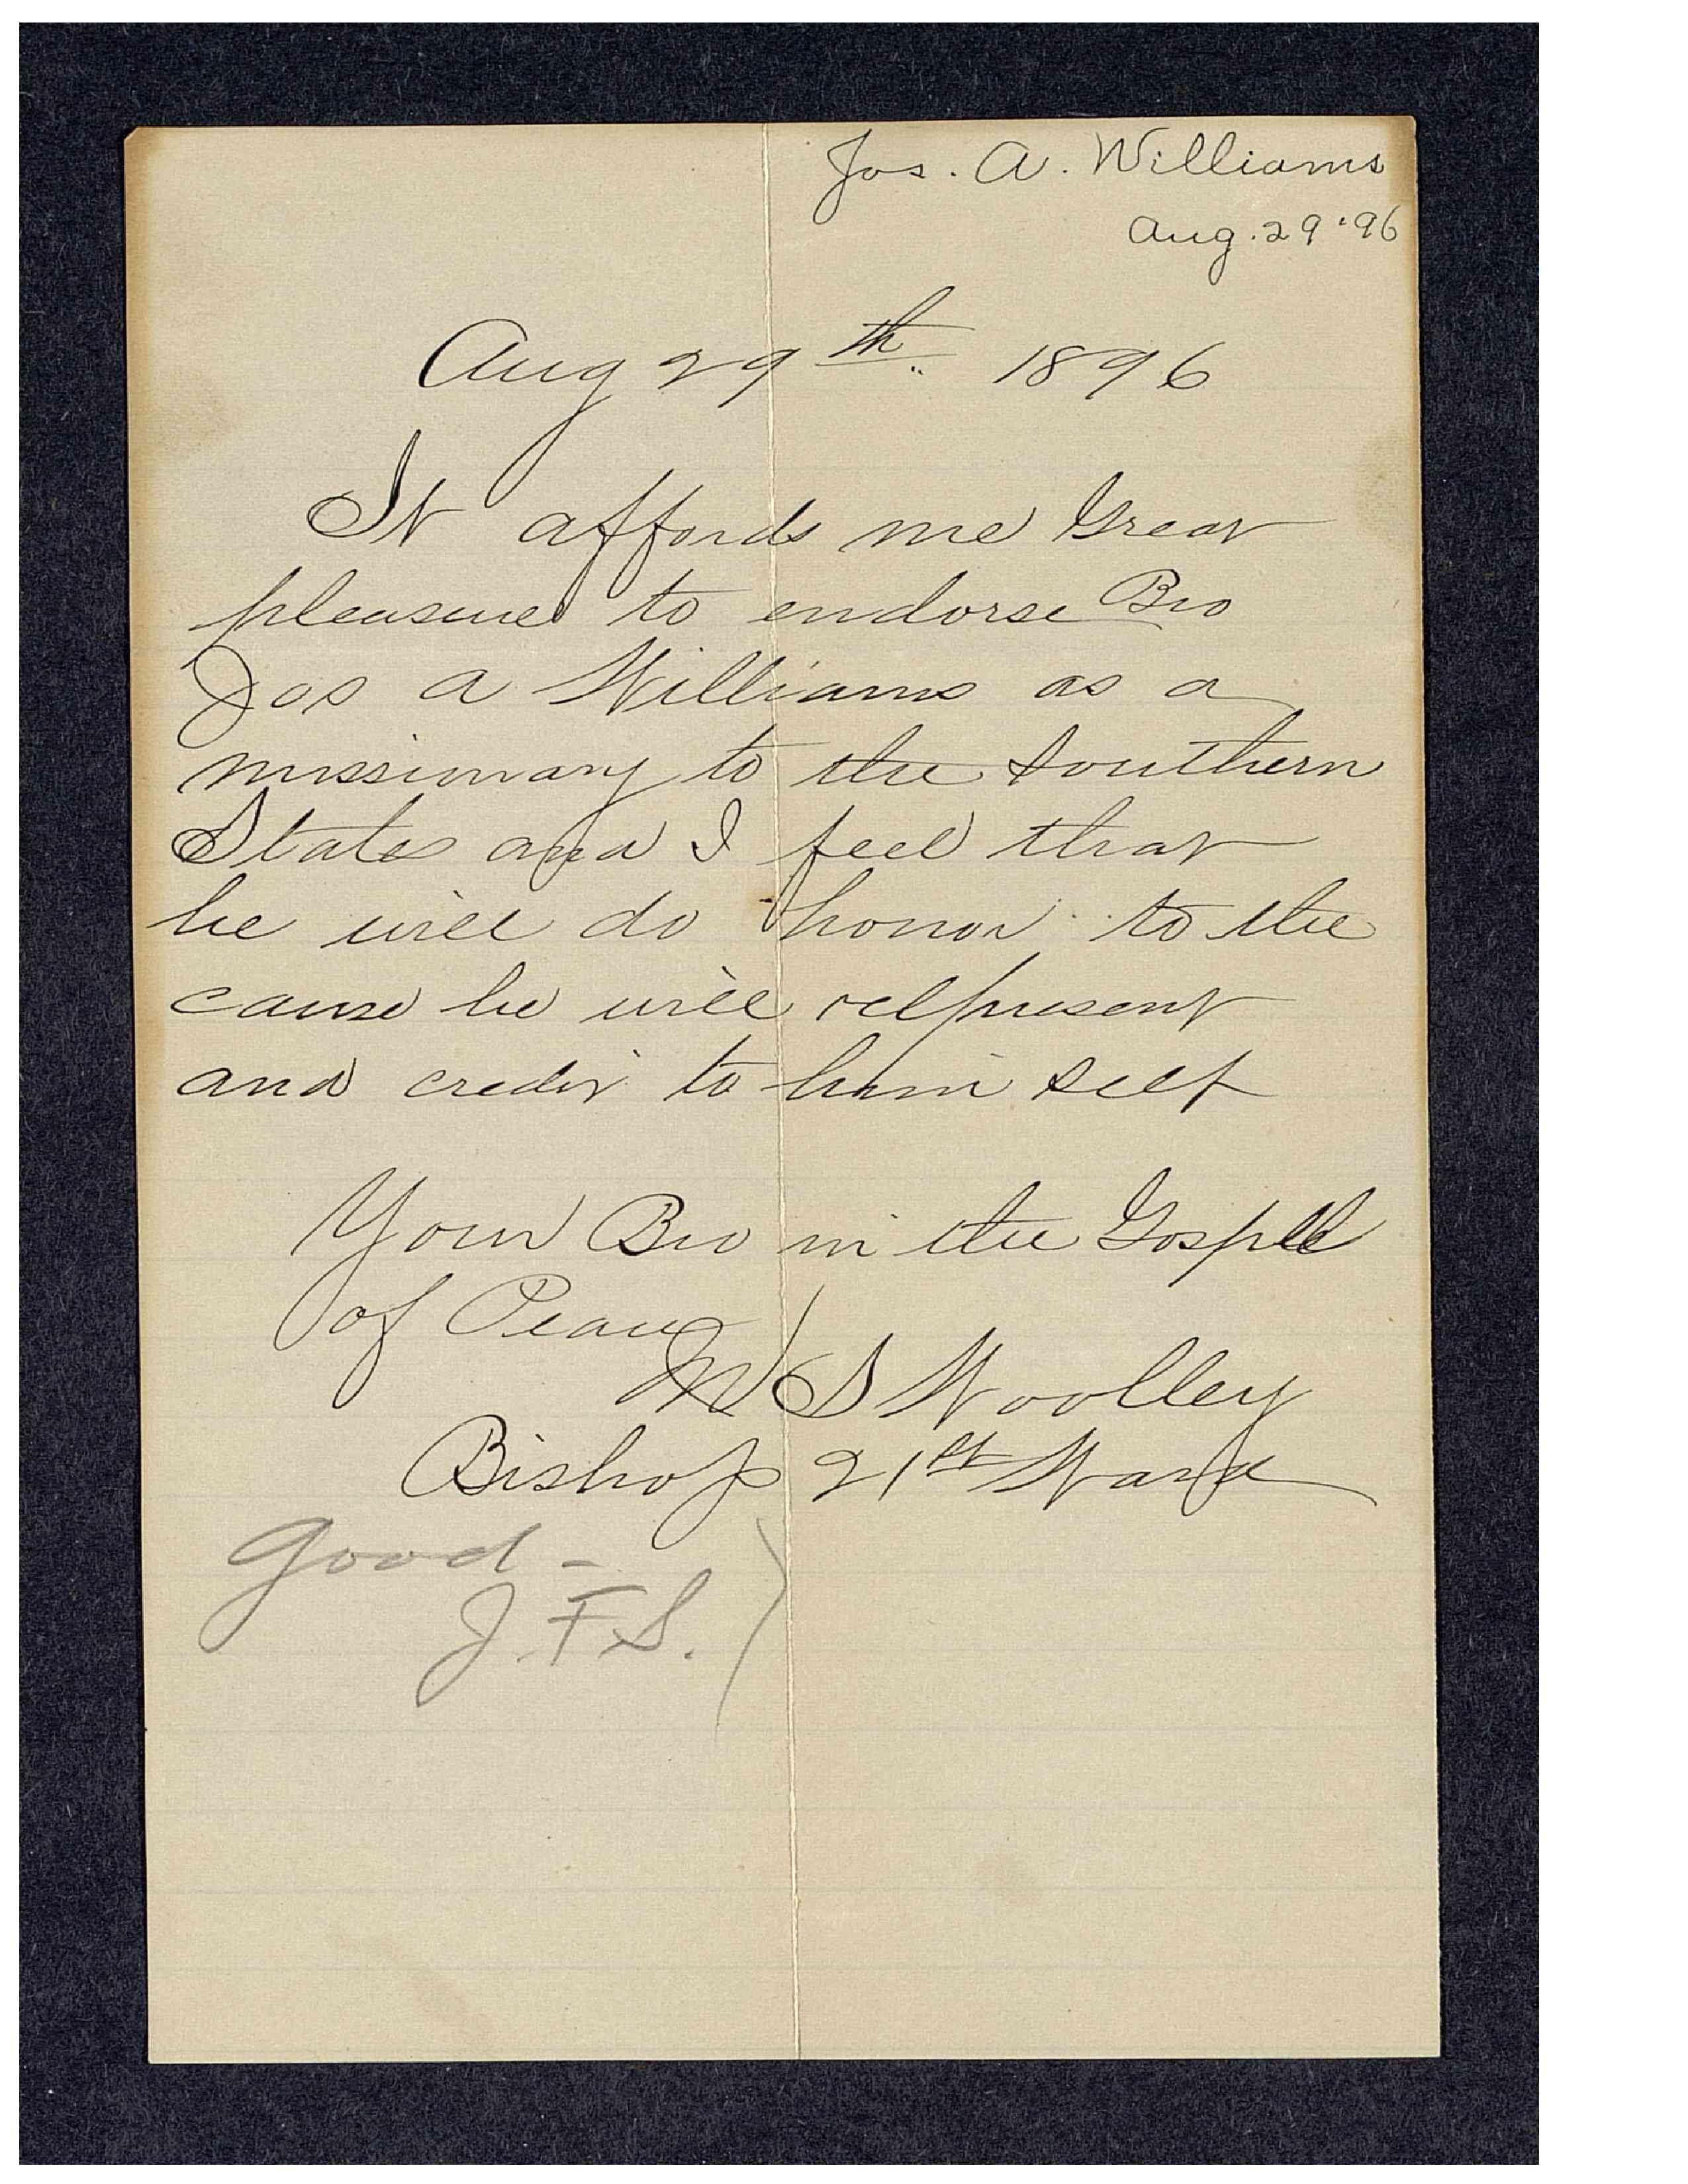 Jos. A. Williams
Aug. 29 '96
Aug 29th. 1896
It affords me Great
pleasure to endorse Bro
Jos A Williams as a
missionary to the Southern
States and I feel that
he will do honor to the
cause he will relpresent
and credit to him self
Your Bro in the Gospell
of Peace
M S Woolley
Bishop 21st Ward
Good -
J. F. S.